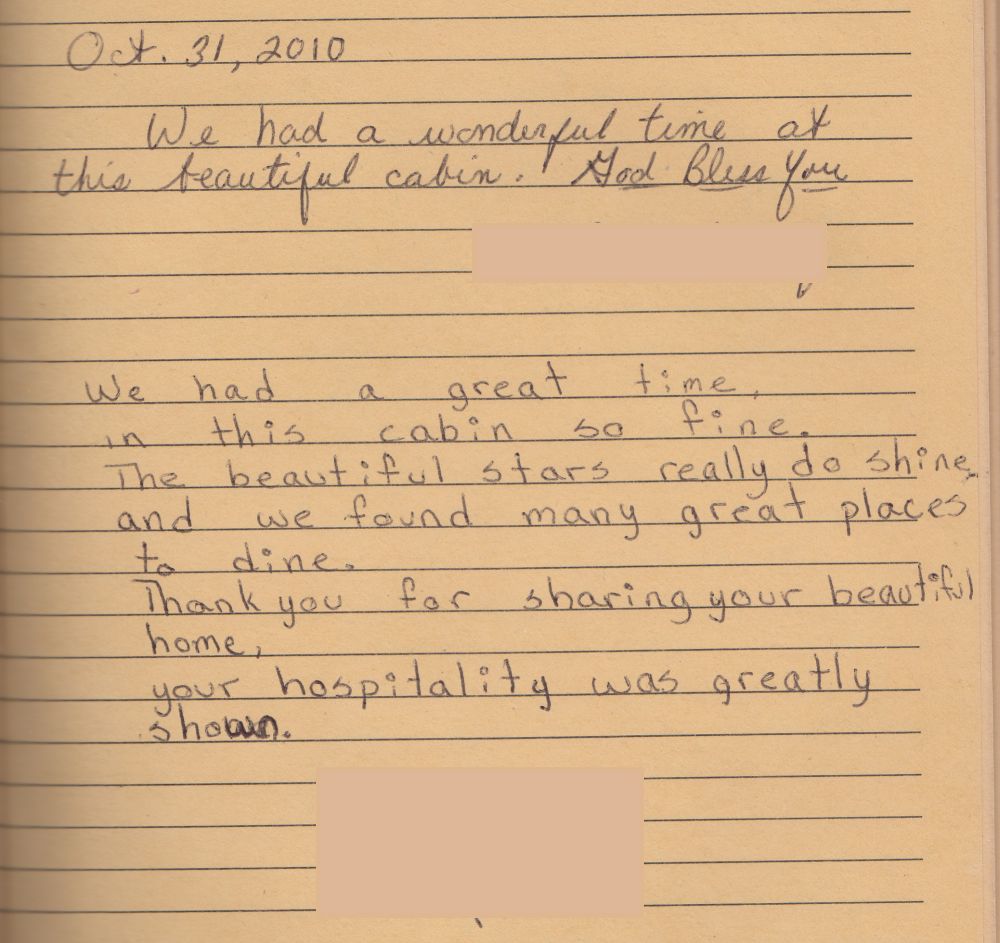 Oct. 31, 2010
We had a wonderful time at
this beautiful cabin. God Bless You
We had a great time,
in this cabin so fine.
The beautiful stars really do shine,
and we found many great places
to dine.
Thank you for sharing your beautiful
home,
your hospitality was greatly
shown.